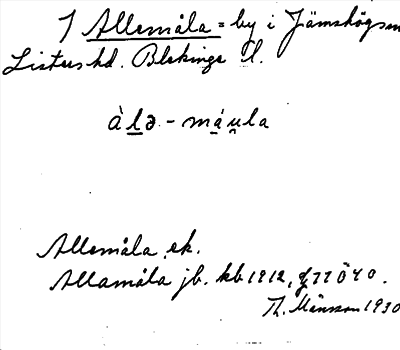 1 Allemåla = by i Jämshögs sn
Listers hd. Blekinge l.
àlə - máu̯la
Allemåla ek.
Allamåla jb. kb 1912,
Th. Månsson 1930